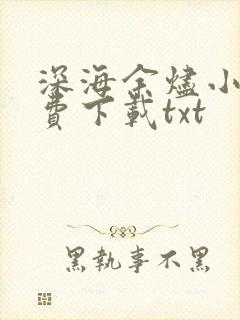 深海余燼小
費下載txt
黑執事不黑